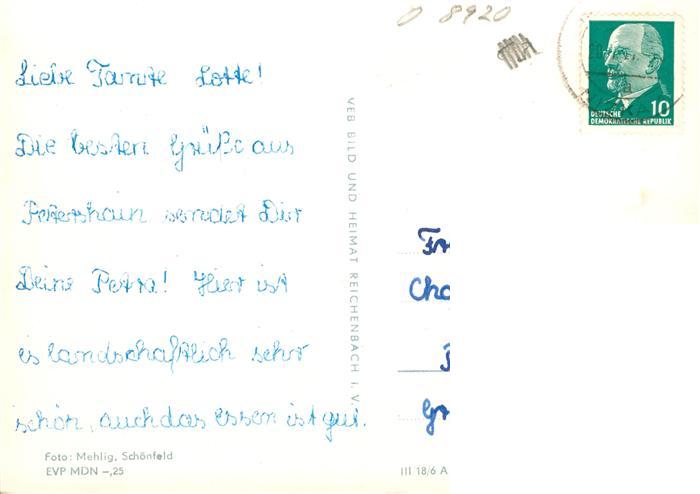 O 8920
Liebe Tante Lotte!
Die besten Grüße aus
Petershain sendet Dir
Deine Petra! Hier ist
es landschaftlich sehr
schön, auch das essen ist gut.
VEB BILD UND HEIMAT REICHENBACH I. V.
10
DEUTSCHE
DEMOKRATISCHE REPUBLIK
Foto: Mehlig, Schönfeld
EVP MDN –,25
III 18/6 A